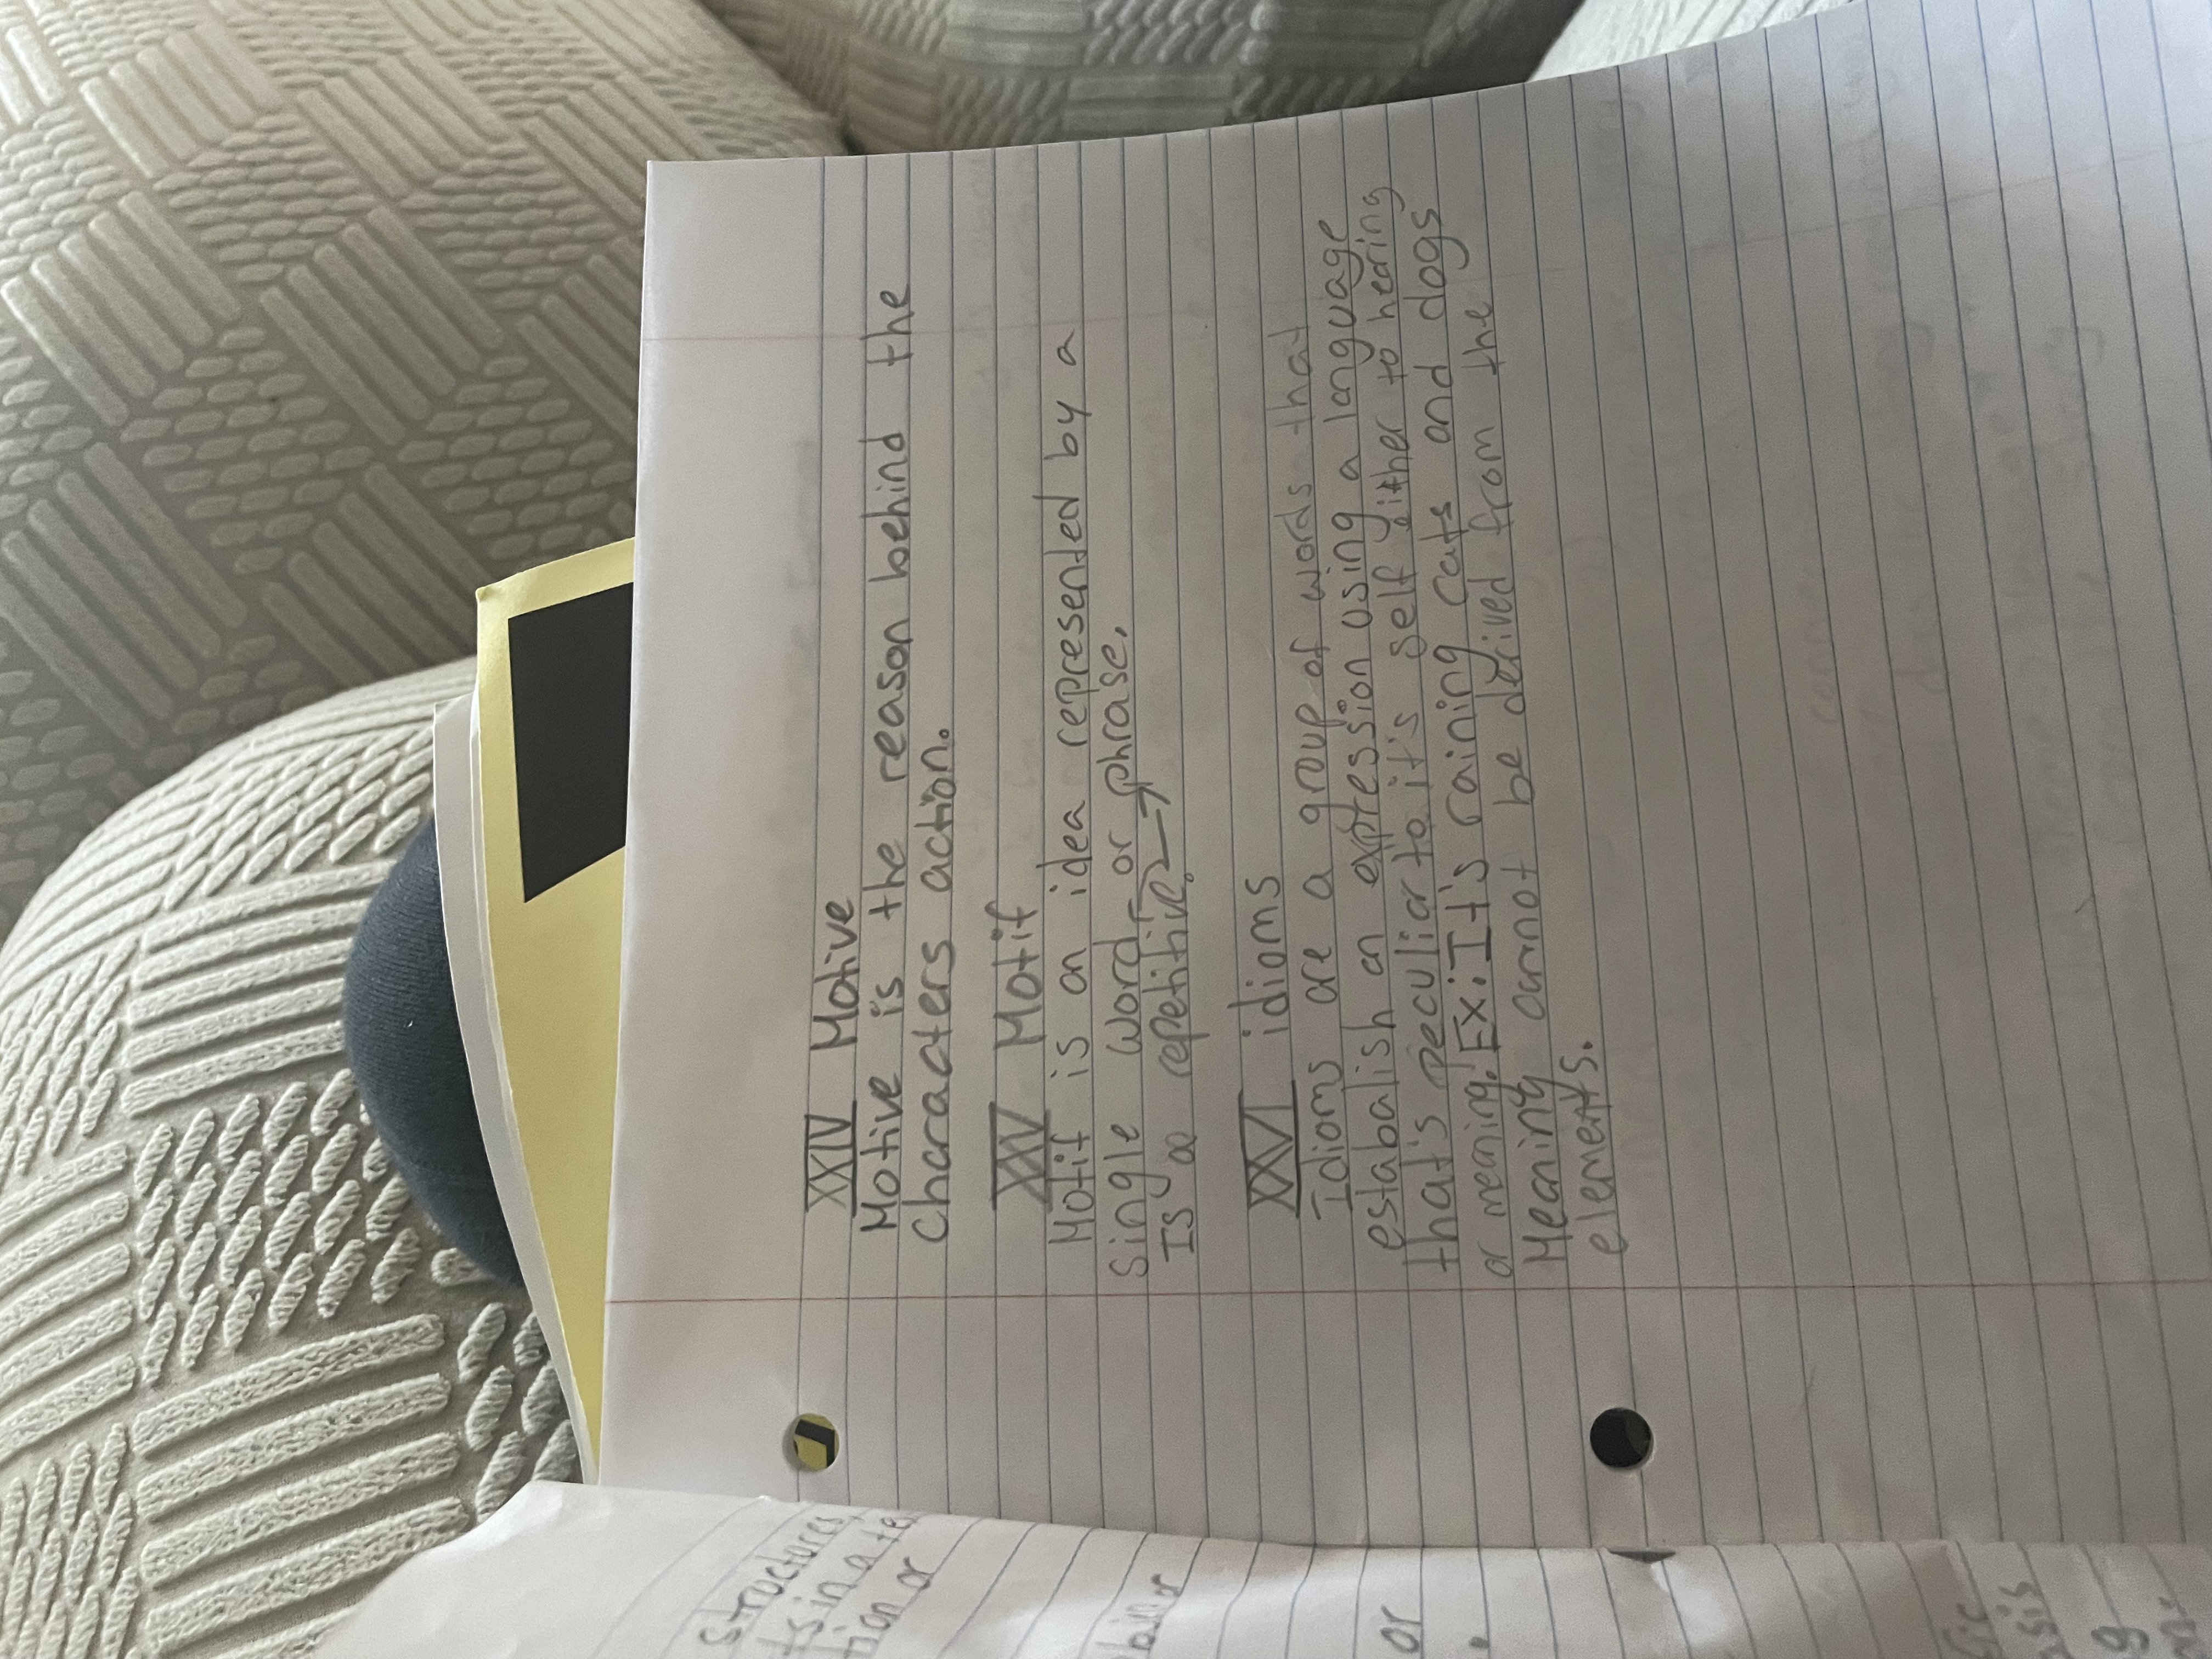 XXIV Motive
Motive is the reason behind the
characters action.
XXV Motif
Motif is an idea represented by a
single word or phrase.
Is a repetitive.
XXVI idioms
Idioms are a group of words that
establish an expression using a language
that's peculiar to it's self either to hearing
or meaning. Ex: It's raining cats and dogs
Meaning cannot be derived from the
elements.
structures,
ts in a te
tion or
or